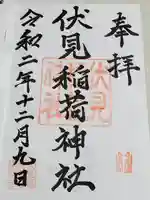 奉拝
伏見稲荷神社
令和二年十二月九日